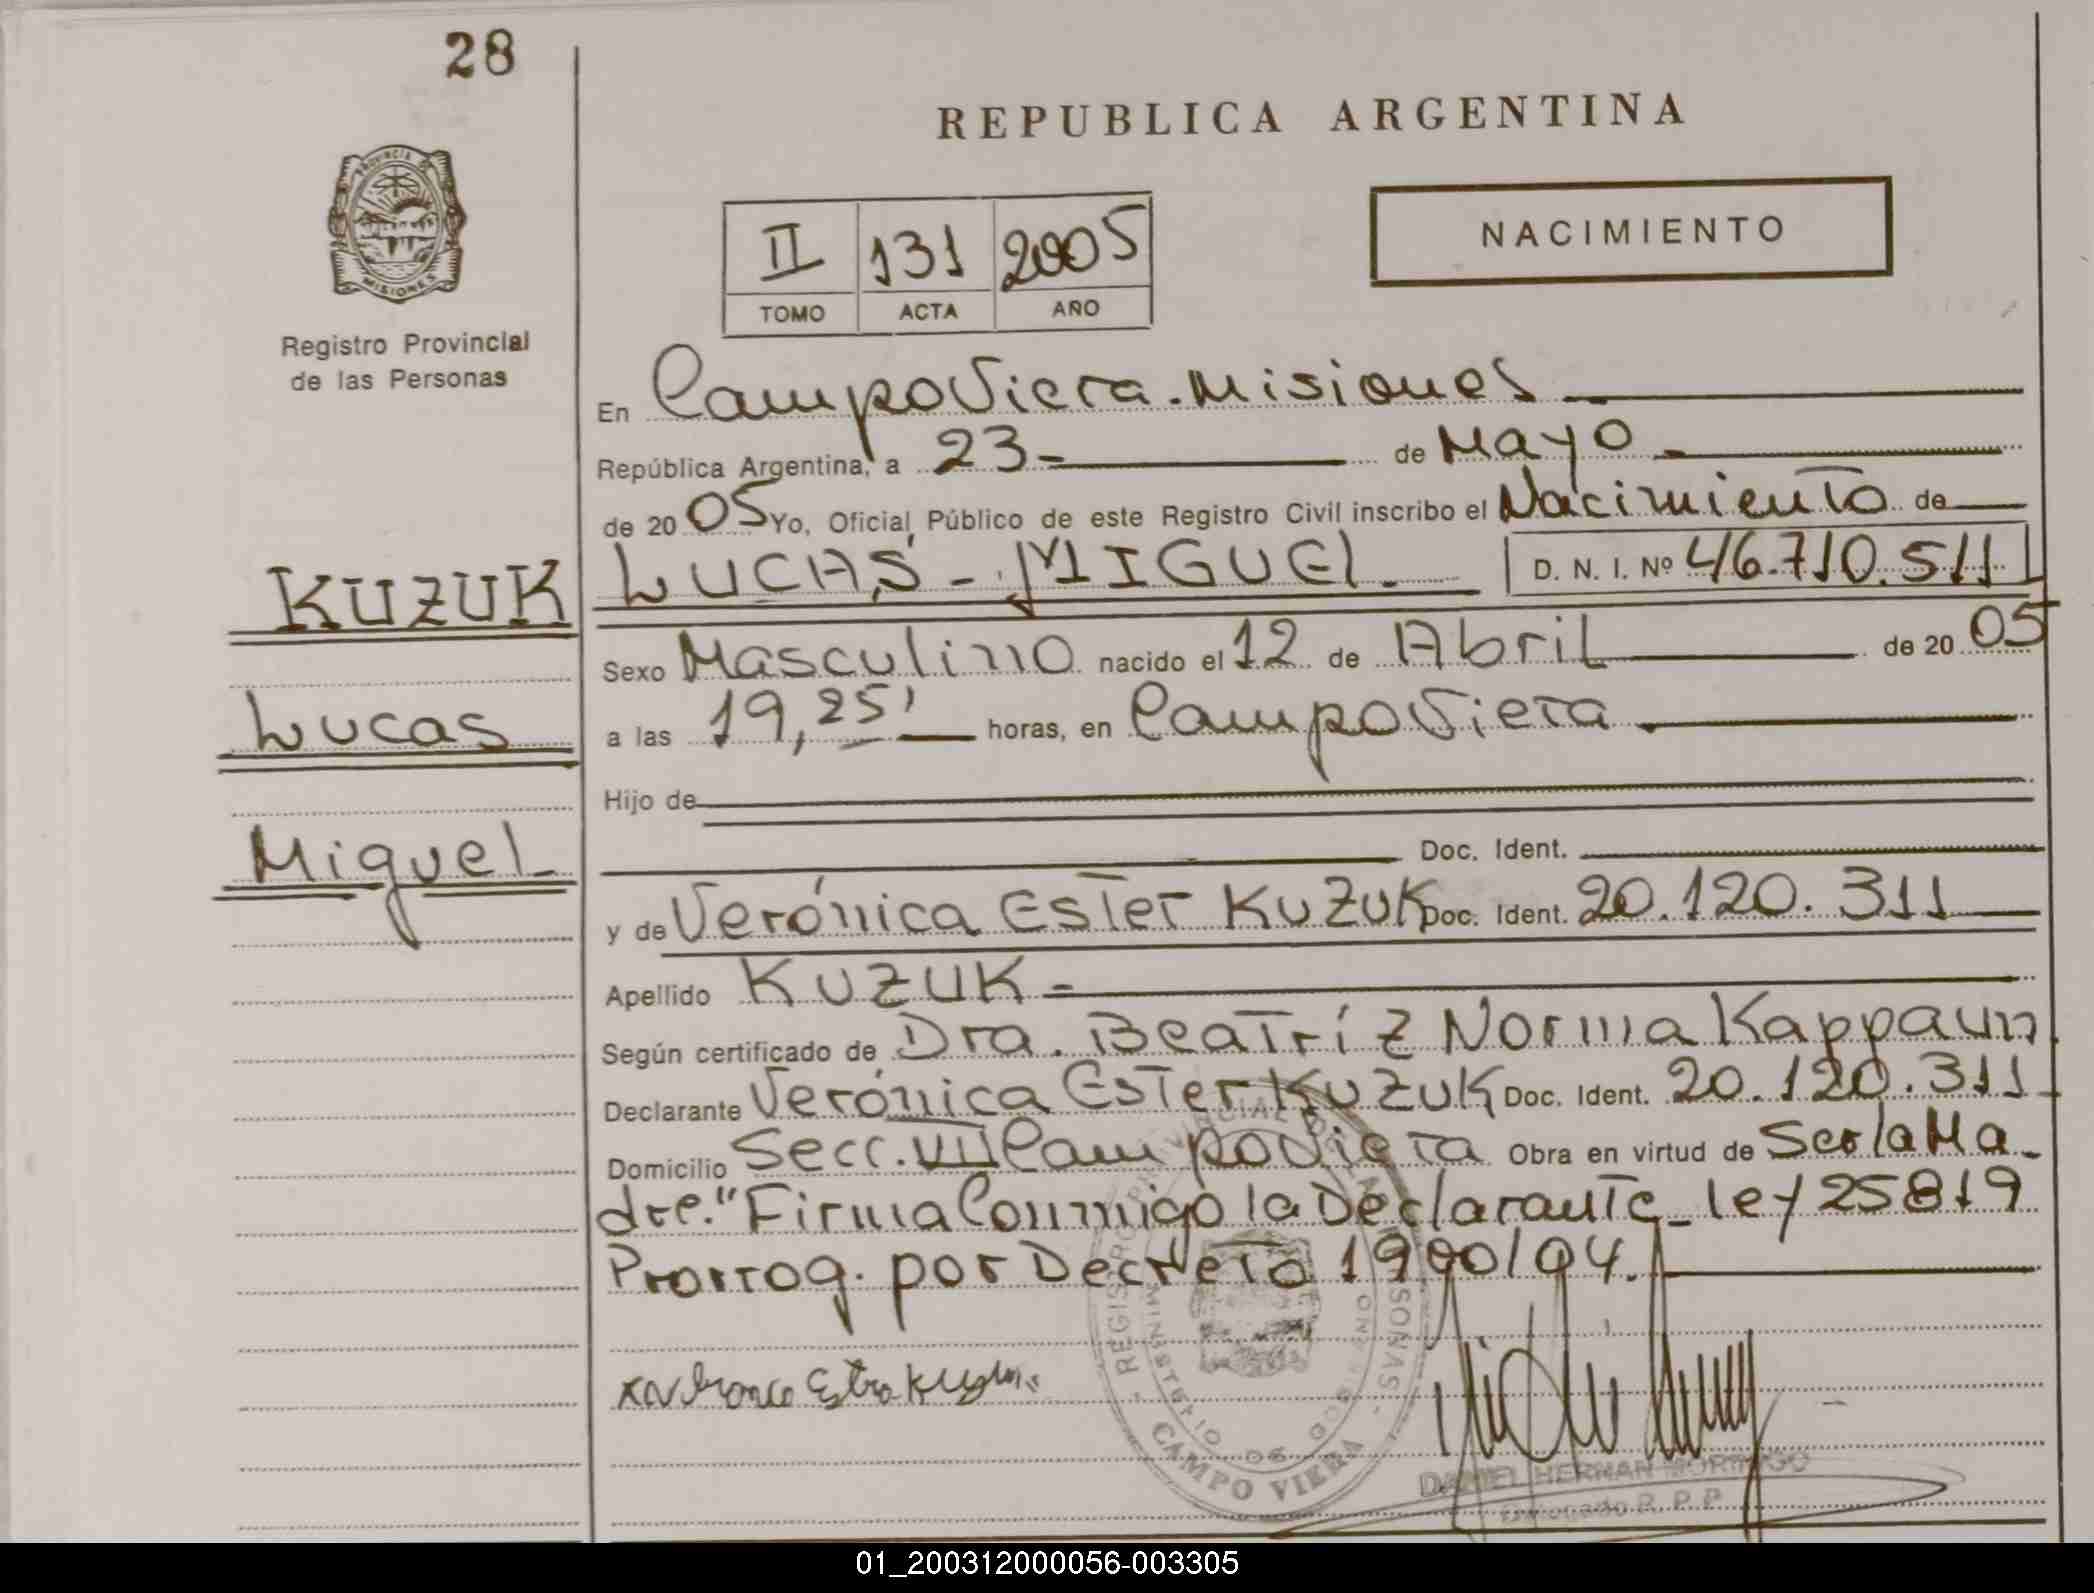 28
REPUBLICA ARGENTINA
PROVINCIA DE
MISIONES
II 131 2005
TOMO ACTA AÑO
NACIMIENTO
Registro Provincial
de las Personas
En Campo Viera. Misiones
República Argentina, a 23- de Mayo
de 2005 Yo, Oficial Público de este Registro Civil inscribo el Nacimiento de
KUZUK
LUCAS - MIGUEL. D. N. I. Nº 46.710.511
Sexo Masculino nacido el 12 de Abril de 2005
Lucas
a las 19,25' horas, en Campo Viera
Hijo de
Miguel
Doc. Ident.
y de Verónica Ester KUZUK Doc. Ident. 20.120.311
Apellido KUZUK -
Según certificado de Dra. Beatríz Norma Kappaun
Declarante Verónica Ester KUZUK Doc. Ident. 20.120.311
Domicilio Secc. VII Campo Viera Obra en virtud de Ser la Ma-
dre." Firma Conmigo la Declarante - ley 25819
Prorrog. por Decreto 1900/04.
REGISTRO PROVINCIAL DE LAS PERSONAS
MINISTERIO DE GOBIERNO
CAMPO VIERA
DANIEL HERNAN MORINIGO
R. P. P.
01_200312000056-003305